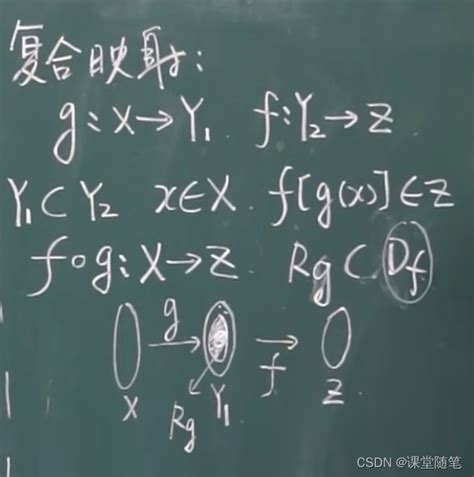 复合映射:
g:X→Y₁ f:Y₂→Z
Y₁⊂Y₂ x∈X. f[g(x)]∈Z
f∘g:X→Z. Rg⊂Df
g
f
X
Rg
Y₁
Z.
CSDN @课堂随笔